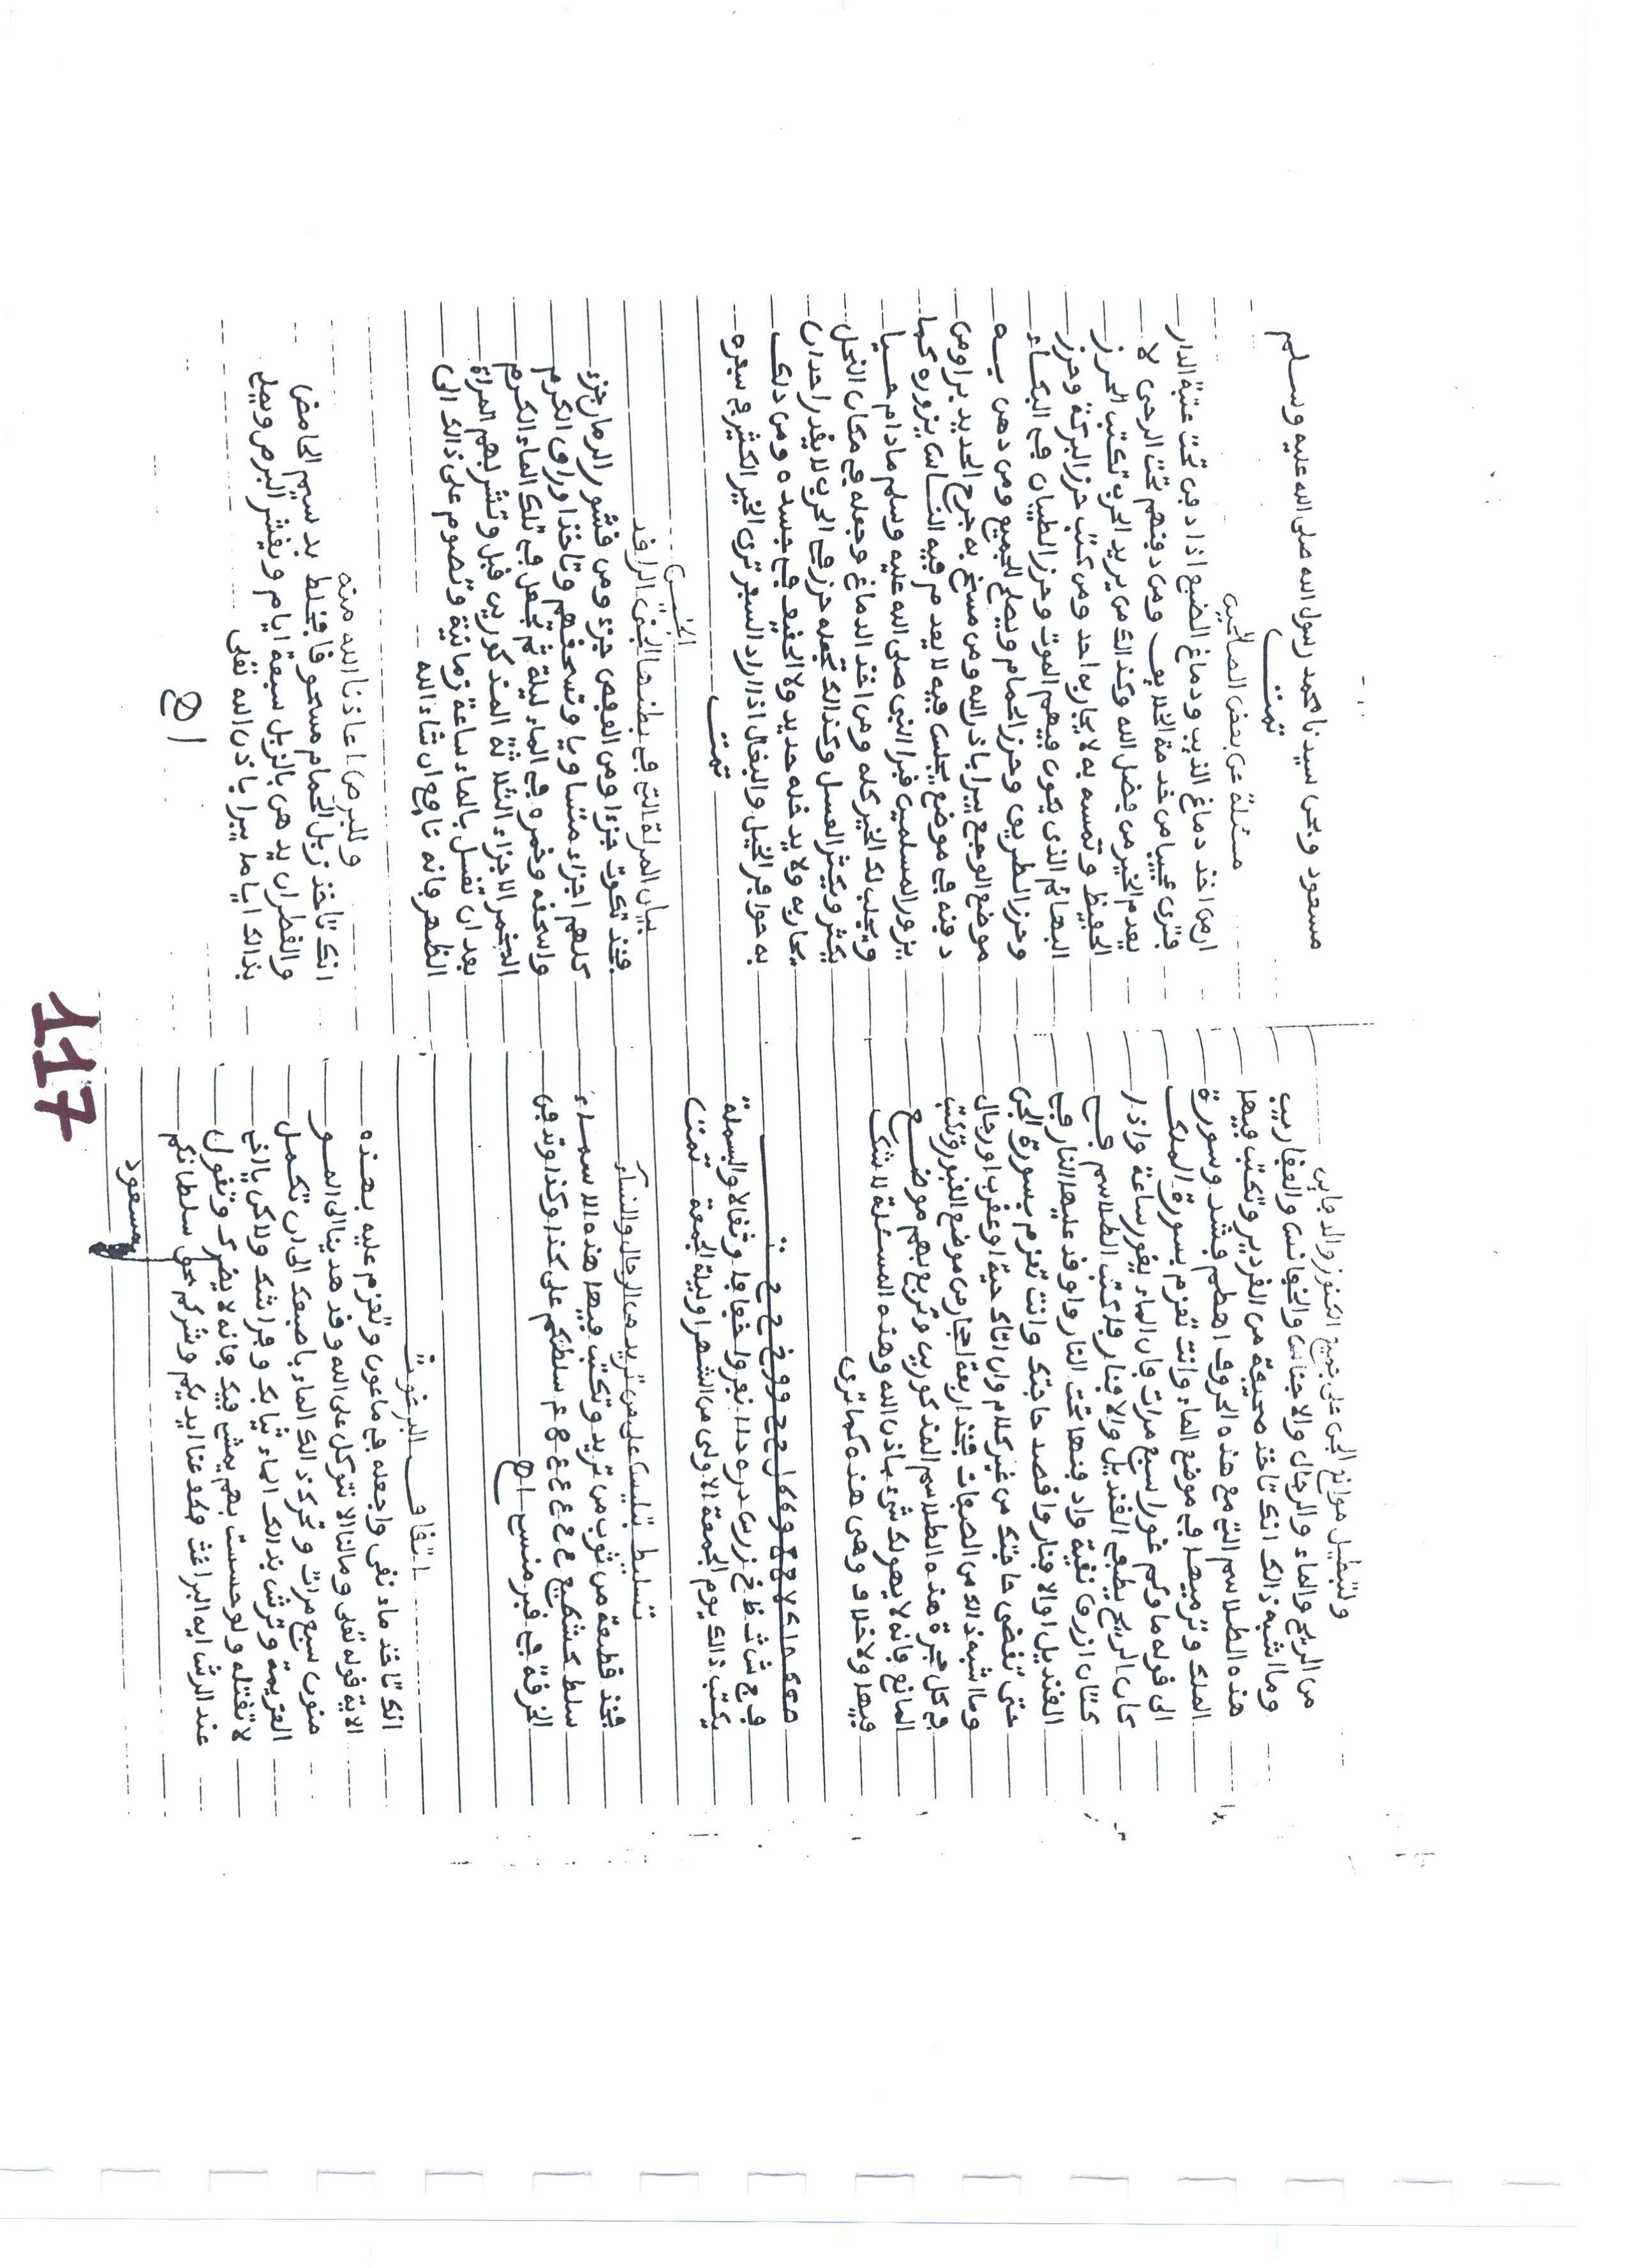 ولتبطيل موانع الجن على جميع الكنوز والدفاين
من الريح والماء والرجال والاجناس والخفانس والعقاريب
وما اشبه ذالك انك تاخذ صحيفة من القزدير وتكتب فيها
هذه الطلاسم التي مع هذه الحروف اهطم فشد وسورة
الملك وترميها في موضع الماء وانت تعزم بسورة الملك
الى قوله ماوكم غورا سبع مرات فان الماء يغور ساعة واذا
كان الريح يطفي القنديل والافنار فاكتب الطلاسم في
كتان ازرق نقية وادفنها تحت النار واوقد عليها النار في
القنديل اوالافنار واقصد حاجتك وانت تعزم بسورة الجن
حتى تقضى حاجتك من غير كلام وان اتاك حية اوعقرب اورجال
وما اشبه ذالك من الصفات فخذ اربعة احجار من موضع القبور وتكتب
في كل حجرة هذه الطلاسم المذكورين وتربع بهم موضع
المانع فانه لا يهولك شيء باذن الله وهذه المسئلة لا شك
فيها ولا خلاف وهي هذه كما ترى
ف ج ش ث ظ خ ز
يكتب ذالك يوم الجمعة الاولى من الشهر اوليلة الجمعة تمت
تسلط بتليس على من تريد من الرجال والنساء
فخذ قطعة من ثوب من تريد وتكتب فيها هذه الاسماء
سلط كشطيع ع ع ع ع ع ع سلطتكم على كذا وكذا وتدفن
الخرقة في قبر منسي اهـ
اتقاف البرغوث
انك تاخذ ماء نقى واجعله في ماعون وتعزم عليه بهذه
الاية قوله تعلى ومالنا الا نتوكل على الله وقد هدينا الى المو
منون سبع مرات وتحرك ذالك الماء باصبعك الى ان تكمل
العزيمة وترش بذالك الماء ثيابك وفراشك ولاكن يا اخي
لا تقتله ولوحسست بهم يمشي فيك فانه لا يضرك وتقول
عند الرش ايه البراغث فكو عنا ايديكم وشركم بحق سلطانكم
مسعود
مسعود وبحق سيدنا محمد رسول الله صلى الله عليه وسلم
تمت
مسئلة عن بعض الصالحين
ارمن اخذ دماغ الذيب ودماغ الضبع اذا دفن تحت عتبة الدار
فترى عجيبا من خدمة الخلايف ومن دفنهم تحت الرحى لا
يعدم الخير من فضل الله وكذالك من يريد الحرب تكتب الحرز
الحفيظ وتمسه به لا يحاربه احد ومن كتب حرز البركة وحرز
البهائم الذي يكون فيهم الموت وحرز الطبيان في البكاء
وحرز الطريق وحرز الحمام ويصلح للجميع ومن دهن به
موضع الوجيع يبرا باذن الله ومن مسح به جرح الحديد برا ومن
دفنه في موضع يجلس فيه لا يعدم فيه الناس يزوره كما
يزور المسلمين قبر النبي صلى الله عليه وسلم مادام حيا
ويجلب لك الخير كله ومن اخذ الدماغ وجعله في مكان النحل
يكثر ويكثر العسل وكذالك تجعله حرز في الحرب لا يقدر احد ان
يحاربه ولا يدخله حديد ولا الخفيف في جسده ومن دلك
به حوافر الخيل والبغال اذا اراد السفر ترى الخير الكثير في سفره
تمت
الجنين
بيان المرلة التي في بطنها الجني الراقد
فخذ تكوت جزءا ومن العفص جزء ومن قشور الرمان جزء
كلهم اجزاء متساويا وتسحقهم وتاخذ اوراق الكرم
واسحقه وخمره في الماء ليلة ثم تجعل في تلك الماء الكرم
المخمر الاجزاء الثلاثة المذكورين قبل وتشربهم المراة
بعد ان تغسل بالماء ساعة زمانية وتصوم على ذالك الى
الظهر فانه نافع ان شاء الله
وللبرص اعاذنا الله منه
انك تاخذ زبل الحمام مسحوقا فيخلط بدسيم الحامض
والقطران يدهن بالزبل سبعة ايام ويقشر البرص ويبلي
بذالك اياما يبرا باذن الله تعلى
117